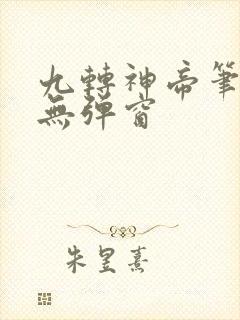 九轉神帝筆
無彈窗
朱昱熹